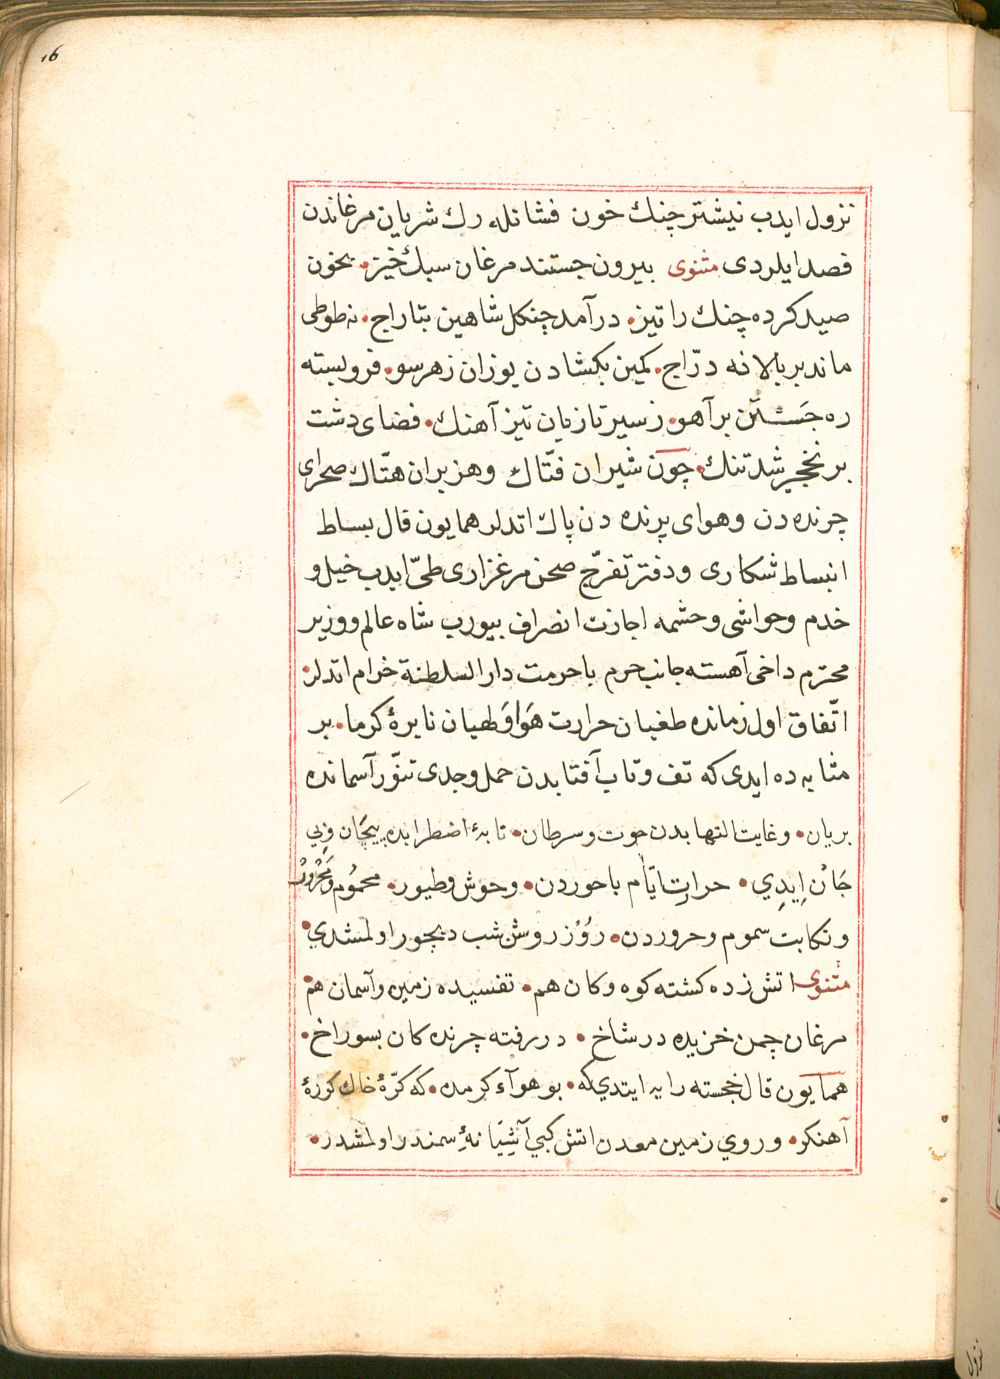 16
نزول ايدب نيشتر چنك خون فشانله رك شريان مرغاندن
فصد ايلردى مثنوى بيرون جستند مرغان سبك خيز. بخون
صيد كرده چنك را تيز. درآمد چنكل شاهين بتاراج. نه طوطى
ماند بر بالا نه درّاج. كمين بكشادن يوزان زهر سو. فرو بسته
ره جستن بر آهو. ز سير تازيان تيز آهنك. فضاى دشت
بر نخجير شد تنك. چون شيران فتّاك وهزبران هتّاك صحراى
چرنده دن وهواى پرنده دن پاك اتدلر همايون قال بساط
انبساط شكارى ودفتر تفرّج صحن مرغزارى طىّ ايدب خيل و
خدم وحواشى وحشمه اجازت انصراف بيورب شاه عالم ووزير
محترم داخى آهسته جانب حرم با حرمت دار السلطنة خرام اتدلر.
اتّفاق اول زمانده طغيان حرارت هَوا وَطهيان نايرهٔ كرما. بر
مثابه ده ايدى كه تف وتاب آفتابدن حمل وجدى تنّور آسمانده
بريان. وغايت التهابدن حوت وسرطان. تابهٔ اضطرابده پيچَان وبى
جَان اِيدِي. حرارت ايّام باحوردن. وحوش وطيور. محمُوم ومَحْرُور
ونكايت سموم وحروردن. رُوْز روشن شب ديجور اولمشدي.
مثنوى اتش زده كشته كوه وكان هم. تفسيده زمين وآسمان هم.
مرغان چمن خزيده در شاخ. در رفته چرنده كان بسوراخ.
همايون قال خجسته رايه ايتدي كه. بو هوآء كرمده. كه كرّهٔ خاك كورهٔ
آهنكر. وروي زمين معدن اتش كبي آشِيَانهٔ سمندر اولمشدر.
نزول